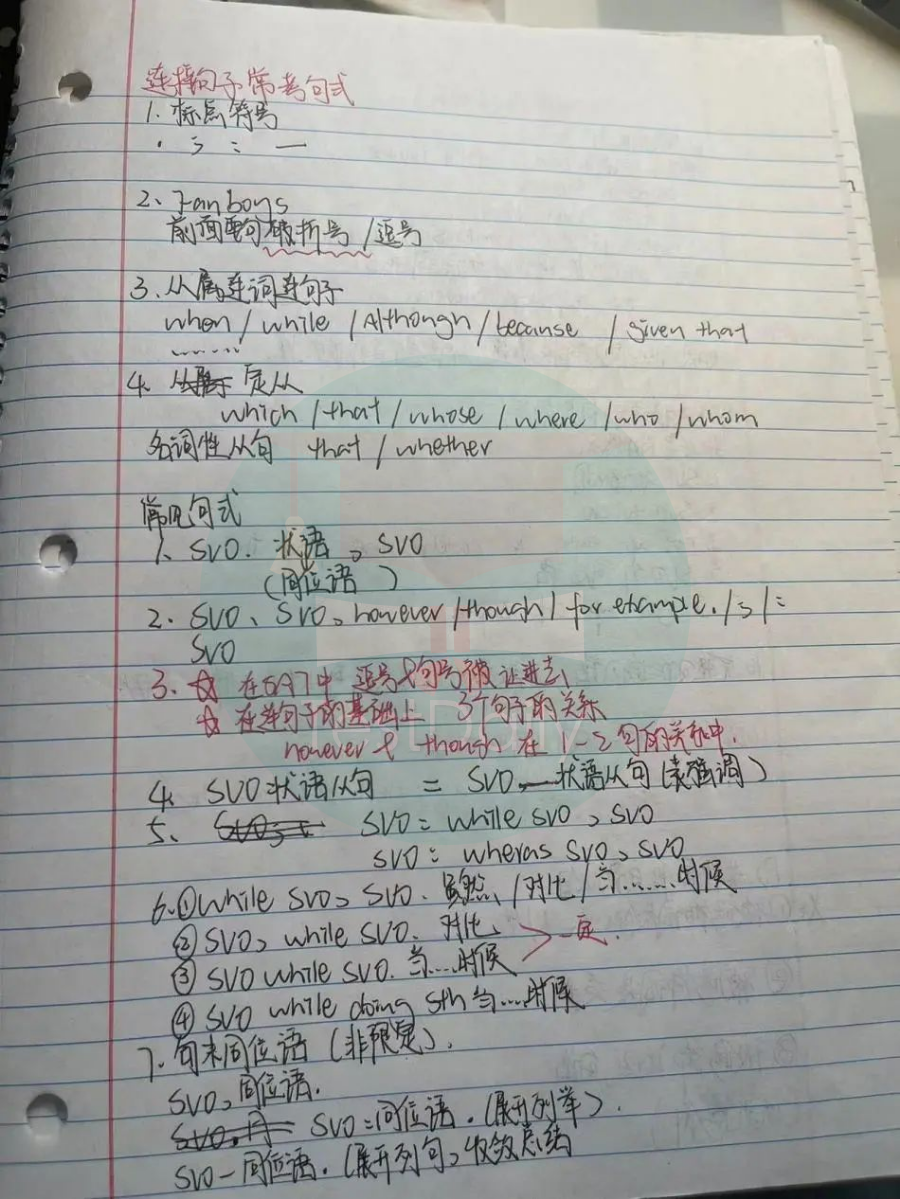 连接句子常考句式
1. 标点符号
. ; : —
2、Fanboys
前面要句破折号/逗号
3、从属连词连句子
when / while / Although / because / given that
......
4. 定从
which / that / whose / where / who / whom
名词性从句 that / whether
常见句式
1、SVO. 状语, SVO
(同位语)
2. SVO、SVO, however / though / for example. / ; / :
SVO
3. ☆ 在SAT中 逗号
☆ 在连句子的基础上 3个句子的关系
however & though 在 1-2 句的关系中.
4. SVO 状语从句 = SVO — 状语从句 (表强调)
5、SVO: while SVO, SVO
SVO: wheras SVO, SVO
6. ① While SVO, SVO. 虽然 / 对比 / 当......时候
② SVO, while SVO. 对比 一定.
③ SVO while SVO. 当....时候
④ SVO while doing sth 当....时候
7. 句末同位语 (非限定).
SVO, 同位语.
SVO: 同位语. (展开列举).
SVO — 同位语. (展开列句, 收敛总结